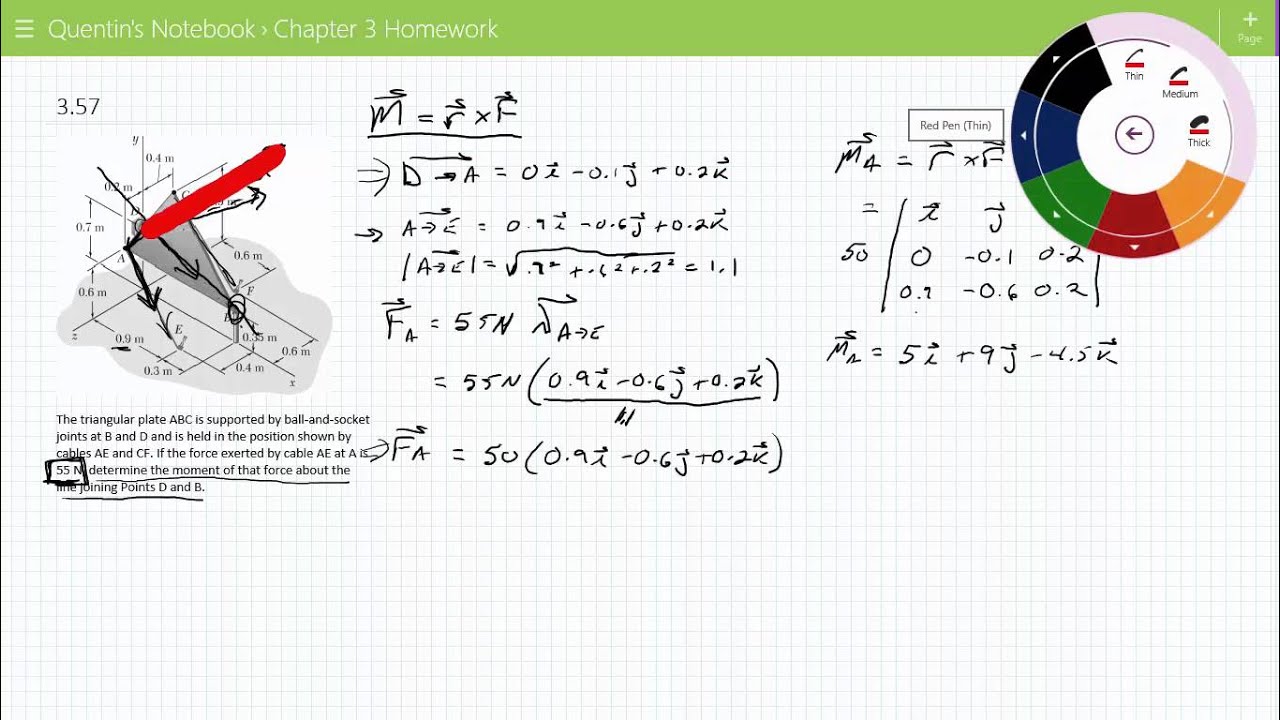 ☰ Quentin's Notebook › Chapter 3 Homework
+
Page
3.57
Thin
Medium
Thick
Red Pen (Thin)
y
0.4 m
0.2 m
C
D
0.7 m
A
0.6 m
0.6 m
F
E
z
0.9 m
0.35 m
0.6 m
0.3 m
0.4 m
x
The triangular plate ABC is supported by ball-and-socket
joints at B and D and is held in the position shown by
cables AE and CF. If the force exerted by cable AE at A is
55 N, determine the moment of that force about the
line joining Points D and B.
M⃗ = r⃗ × F⃗
⇒ D→A = 0i⃗ - 0.1j⃗ + 0.2k⃗
→ A→E = 0.9i⃗ - 0.6j⃗ + 0.2k⃗
|A→E| = √.9² + .6² + .2² = 1.1
F⃗A = 55N λA→E
= 55N (0.9i⃗ - 0.6j⃗ + 0.2k⃗)
1.1
⇒ F⃗A = 50 (0.9i⃗ - 0.6j⃗ + 0.2k⃗)
M⃗A = r⃗ × F⃗
= | i⃗ j⃗
50 | 0 -0.1 0.2 |
0.9 -0.6 0.2
M⃗A = 5i⃗ + 9j⃗ - 4.5k⃗